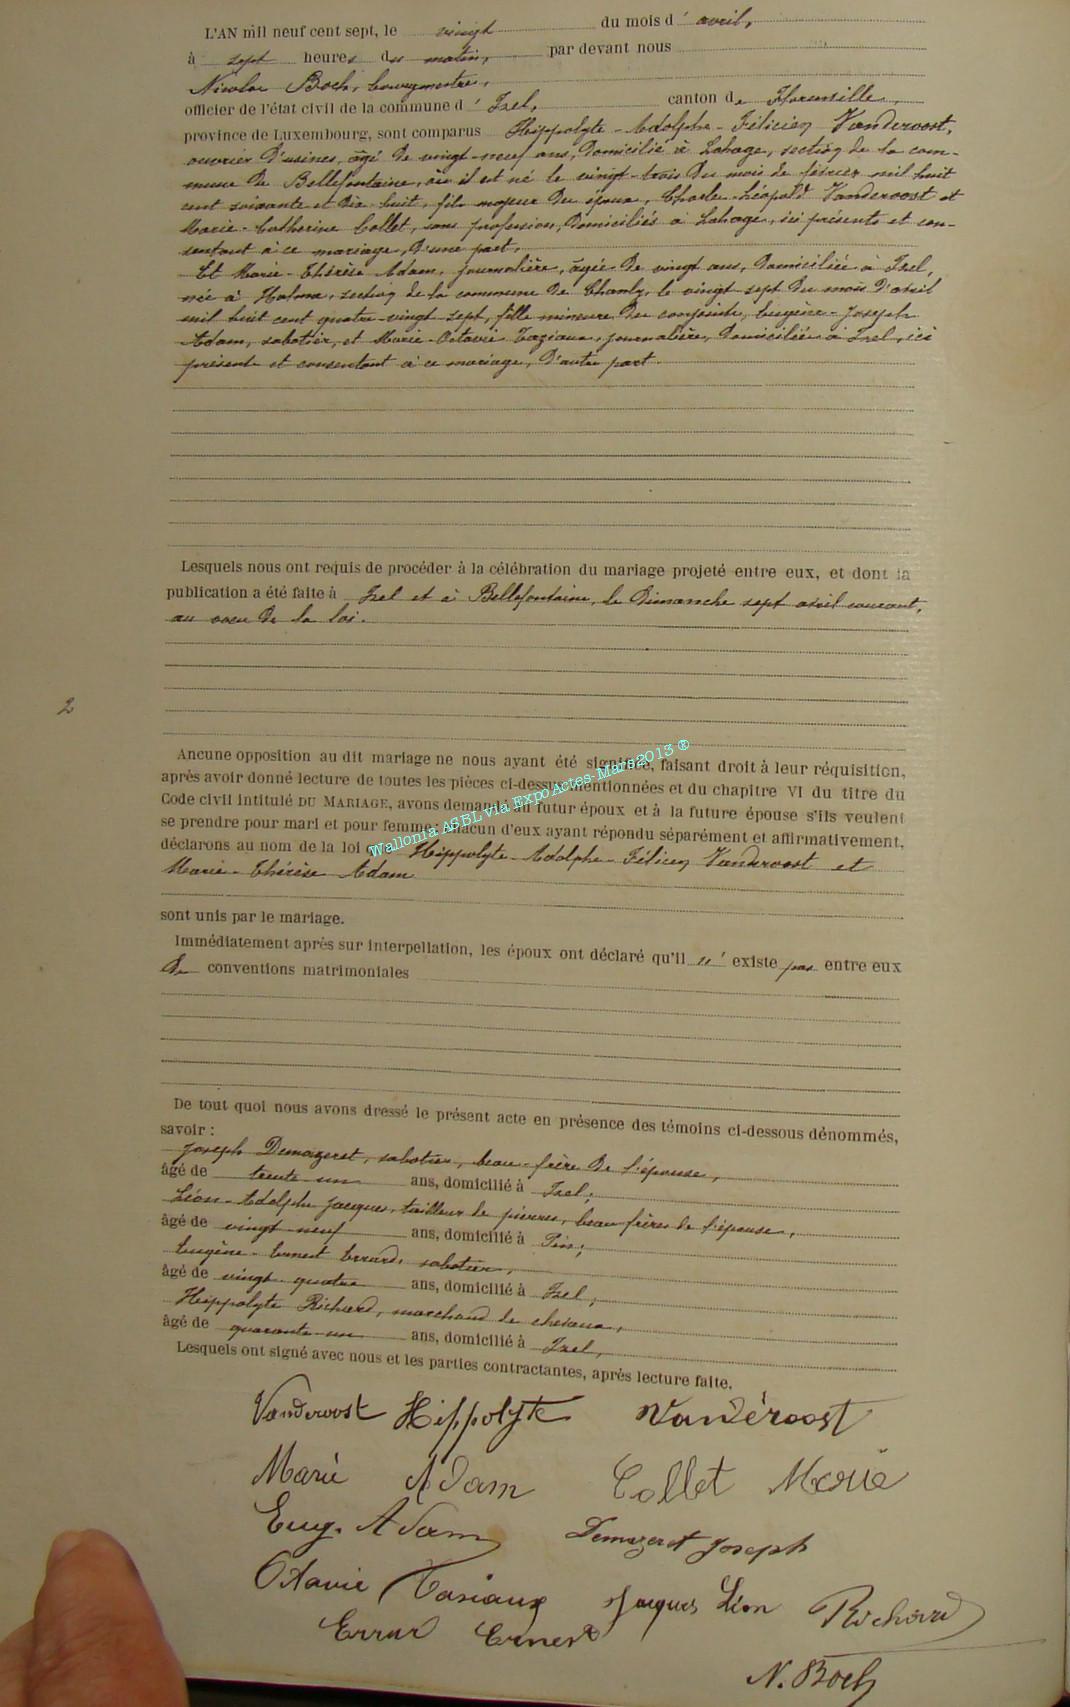 L'AN mil neuf cent sept, le vingt du mois d' avril,
à sept heures du matin, par devant nous
Nicolas Boch, bourgmestre,
officier de l'état civil de la commune d' Izel, canton de Florenville,
province de Luxembourg, sont comparus Hippolyte-Adolphe-Félicien Vanderoost,
ouvrier d'usines, âgé de vingt-neuf ans, domicilié à Lahage, section de la com-
mune de Bellefontaine, où il est né le vingt-trois du mois de février mil huit
cent soixante et dix-huit, fils majeur des époux, Charles-Léopold Vanderoost et
Marie-Catherine Collet, sans profession, domiciliés à Lahage, ici présents et con-
sentant à ce mariage, d'une part,
Et Marie-Thérèse Adam, journalière, âgée de vingt ans, domiciliée à Izel,
née à Halma, section de la commune de Chanly, le vingt-sept du mois d'avril
mil huit cent quatre-vingt-sept, fille mineure des conjoints, Eugène-Joseph
Adam, sabotier, et Marie-Octavie Taziaux, journalière, domiciliés à Izel, ici
présents et consentant à ce mariage, d'autre part.
Lesquels nous ont requis de procéder à la célébration du mariage projeté entre eux, et dont la
publication a été faite à Izel et à Bellefontaine, le Dimanche sept avril courant,
au voeu de la loi.
2
Aucune opposition au dit mariage ne nous ayant été signifiée, faisant droit à leur réquisition,
après avoir donné lecture de toutes les pièces ci-dessus mentionnées et du chapitre VI du titre du
Code civil intitulé DU MARIAGE, avons demandé au futur époux et à la future épouse s'ils veulent
se prendre pour mari et pour femme; chacun d'eux ayant répondu séparément et affirmativement,
déclarons au nom de la loi que Hippolyte-Adolphe-Félicien Vanderoost et
Marie-Thérèse Adam
Wallonia ASBL via ExpoActes-Mars 2013 ®
sont unis par le mariage.
Immédiatement après sur interpellation, les époux ont déclaré qu'il n' existe pas entre eux
de conventions matrimoniales
De tout quoi nous avons dressé le présent acte en présence des témoins ci-dessous dénommés,
savoir :
Joseph Demazeret, sabotier, beau-frère de l'épouse,
âgé de trente un ans, domicilié à Izel;
Léon-Adolphe Jacques, tailleur de pierres, beau frère de l'épouse,
âgé de vingt neuf ans, domicilié à Pin;
Eugène-Ernest Errard, sabotier,
âgé de vingt quatre ans, domicilié à Izel;
Hippolyte Richard, marchand de chevaux,
âgé de quarante-un ans, domicilié à Izel,
Lesquels ont signé avec nous et les parties contractantes, après lecture faite.
Vanderoost Hippolyte Vandéroost
Marie Adam Collet Marie
Eug. Adam Demazeret Joseph
Octavie Tasiaux Jacques Léon Richard
Errard Ernest
N. Boch